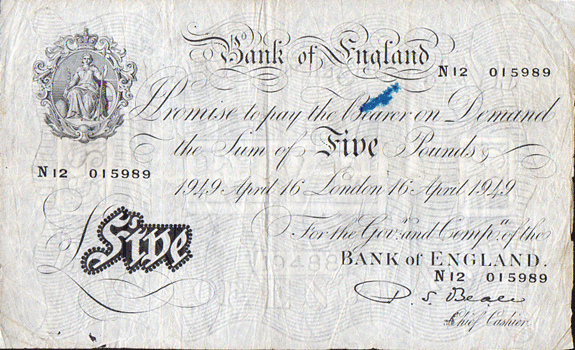 Bank of England
N12 015989
I Promise to pay the Bearer on Demand
the Sum of Five Pounds
N12 015989
1949 April 16 London 16 April 1949
For the Govr. and Compa. of the
BANK of ENGLAND.
N12 015989
£Five
P. S. Beale
Chief Cashier.